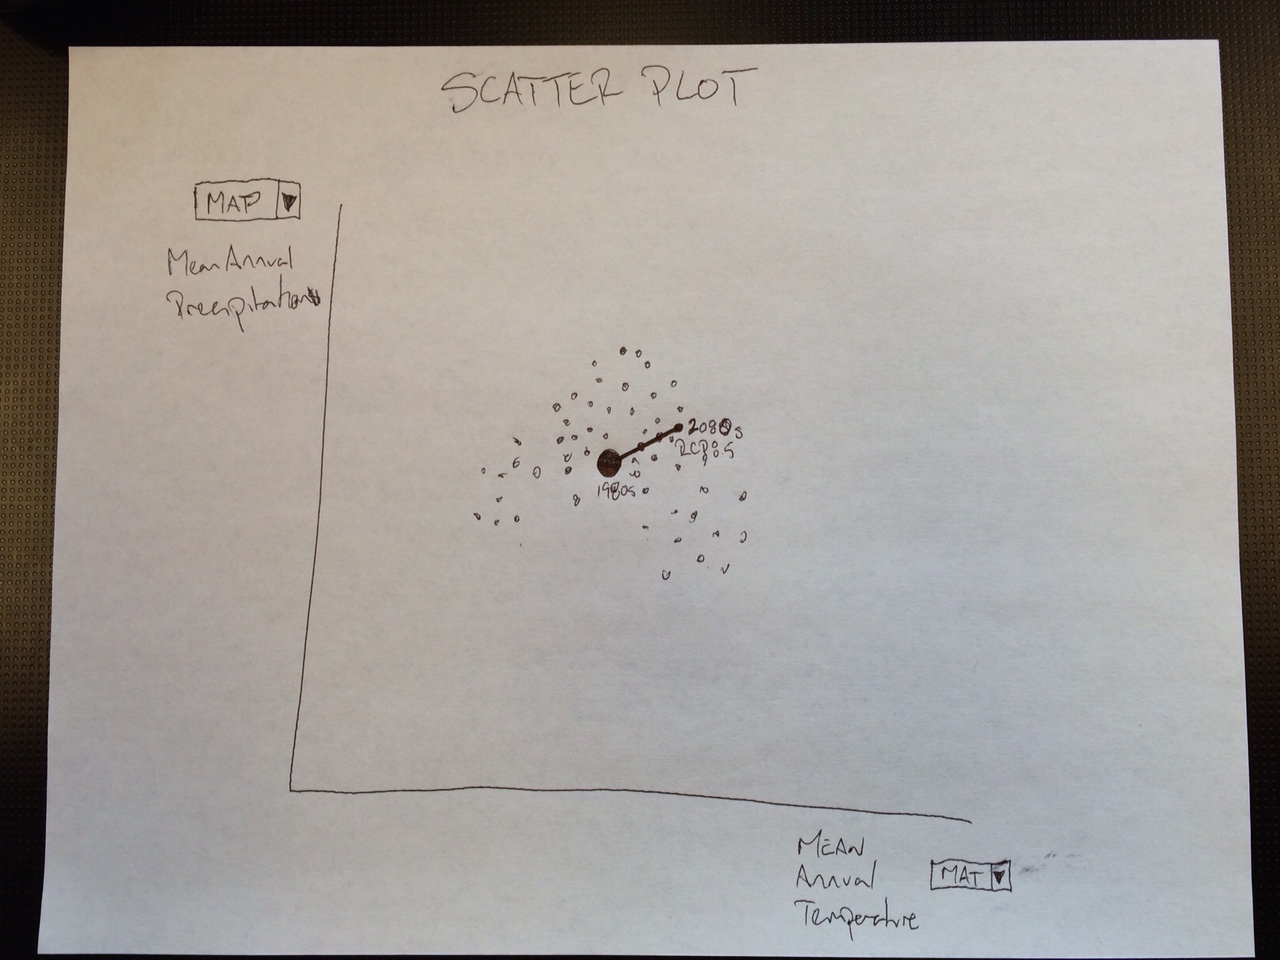 SCATTER PLOT
MAP
Mean Annual
Precipitation
2080s
RCP8.5
1980s
MEAN
Annual
Temperature
MAT